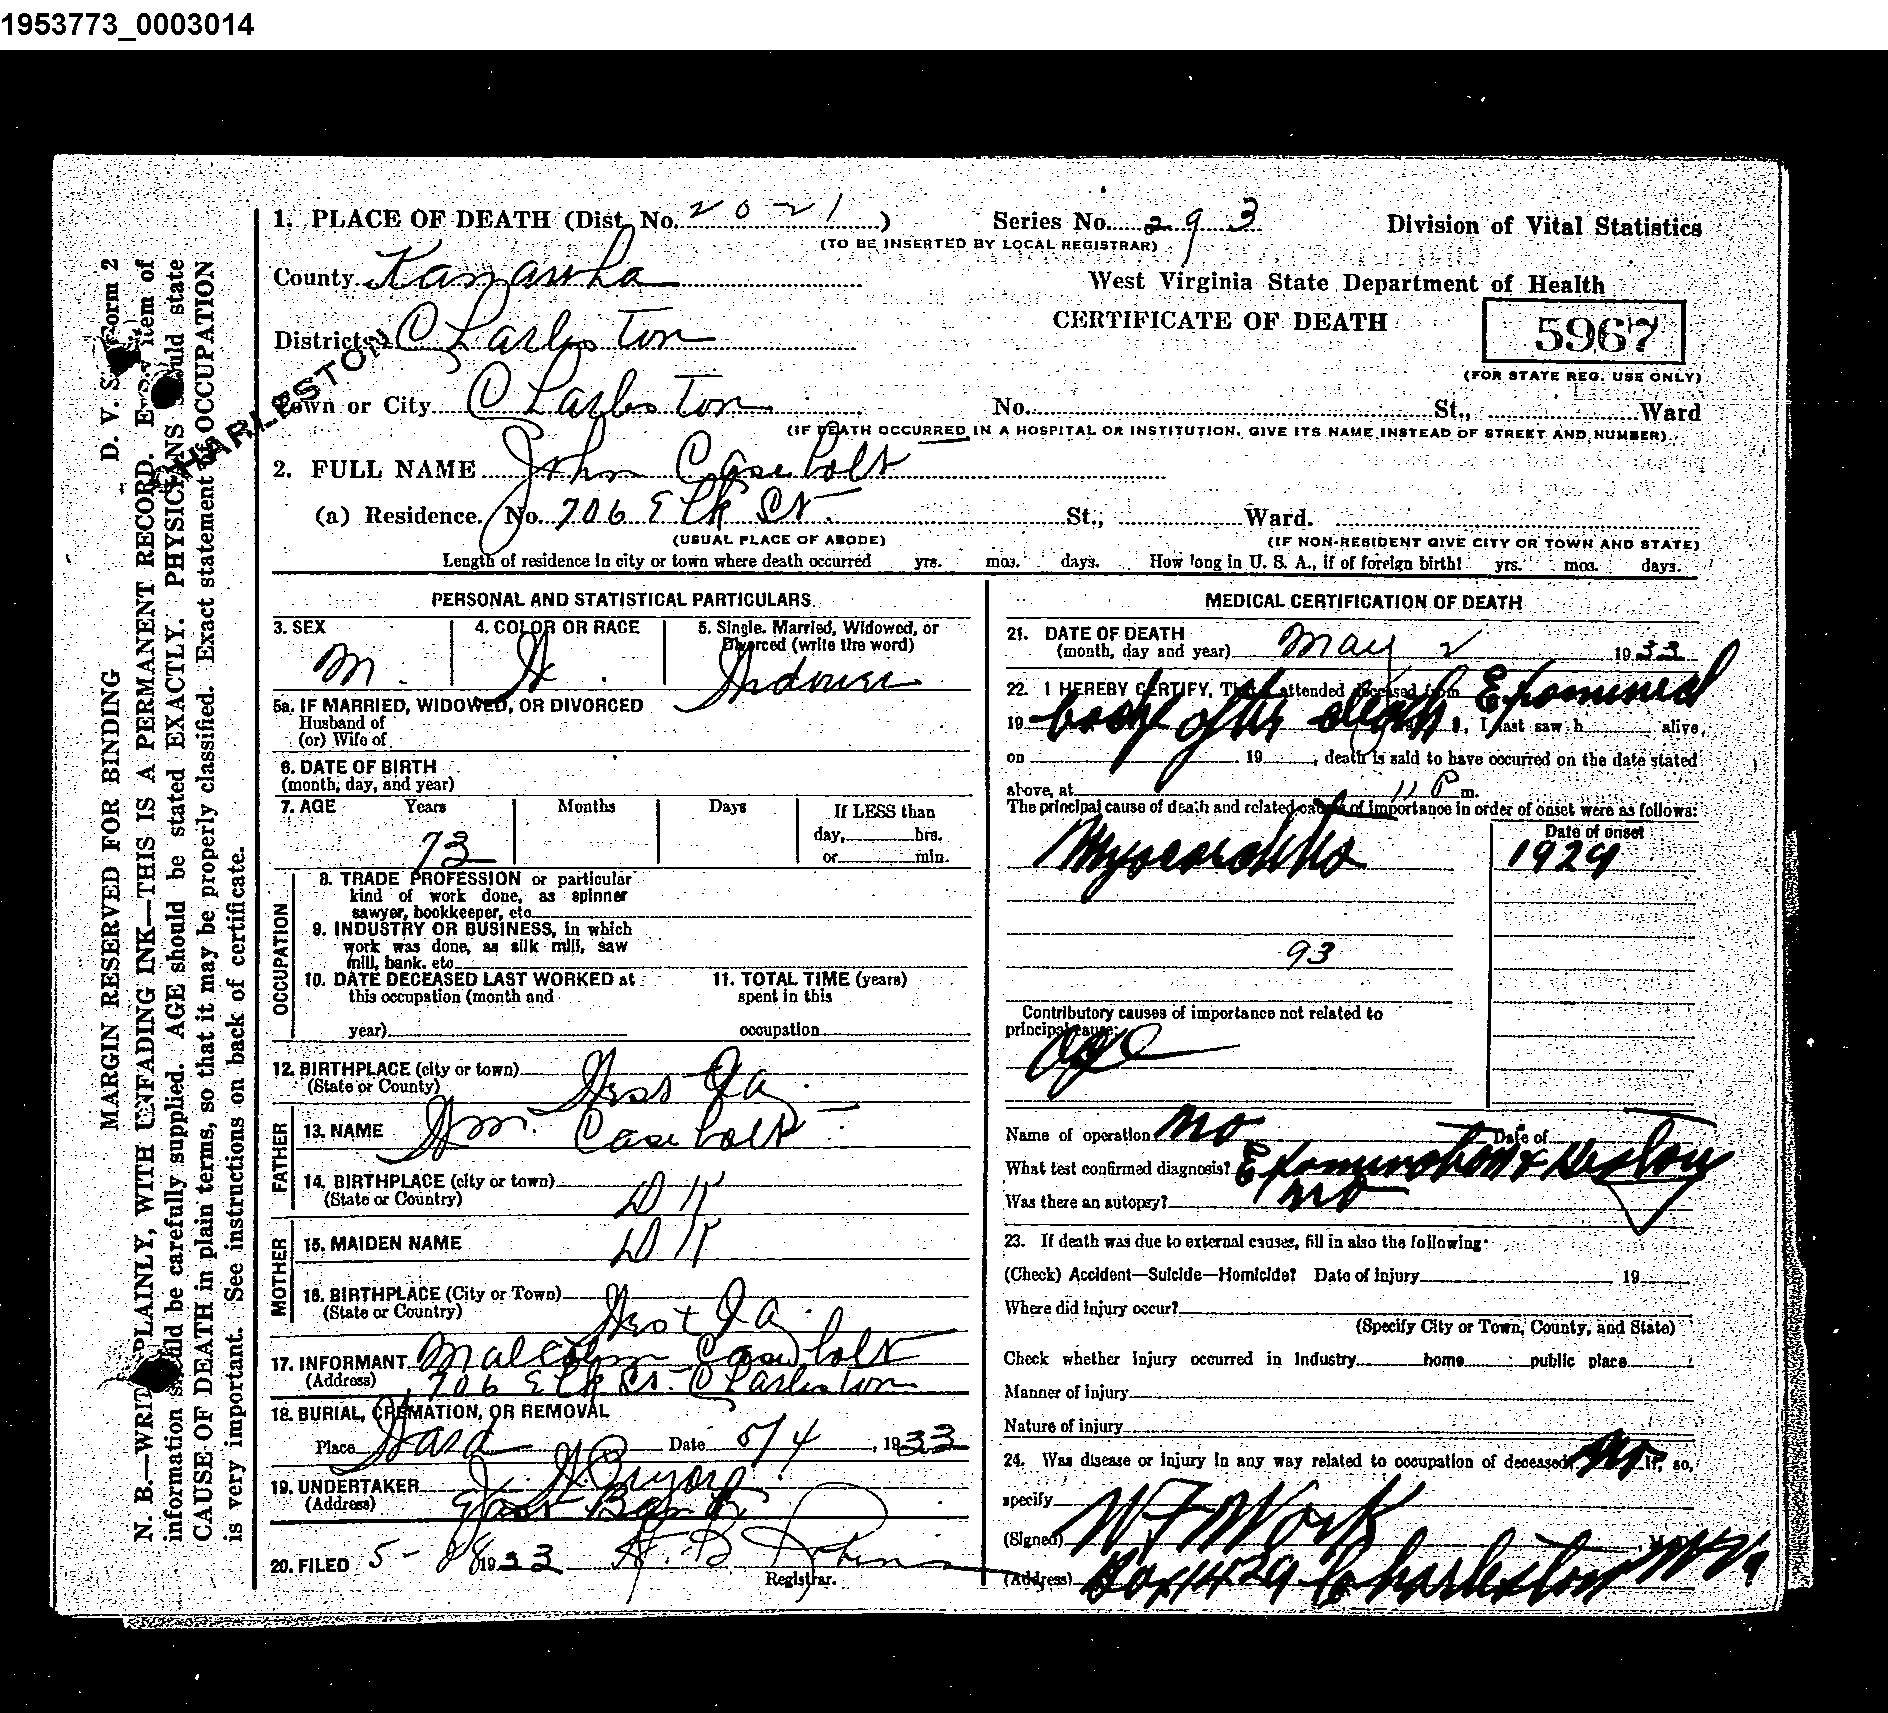 1953773_0003014
1. PLACE OF DEATH (Dist. No. 2021)
Series No. 293
(TO BE INSERTED BY LOCAL REGISTRAR)
Division of Vital Statistics
County Kanawha
West Virginia State Department of Health
District Charleston
CERTIFICATE OF DEATH
5967
(FOR STATE REG. USE ONLY)
CHARLESTON
Town or City Charleston
No. St., Ward
(IF DEATH OCCURRED IN A HOSPITAL OR INSTITUTION, GIVE ITS NAME INSTEAD OF STREET AND NUMBER)
2. FULL NAME John Casebolt
(a) Residence. No. 706 Elk St. St., Ward.
(USUAL PLACE OF ABODE)
(IF NON-RESIDENT GIVE CITY OR TOWN AND STATE)
Length of residence in city or town where death occurred yrs. mos. days. How long in U. S. A., if of foreign birth? yrs. mos. days.
PERSONAL AND STATISTICAL PARTICULARS
3. SEX
M.
4. COLOR OR RACE
W.
5. Single. Married, Widowed, or
Divorced (write the word)
Widower
5a. IF MARRIED, WIDOWED, OR DIVORCED
Husband of
(or) Wife of
6. DATE OF BIRTH
(month, day, and year)
7. AGE Years Months Days If LESS than
day, hrs.
or min.
73
OCCUPATION
8. TRADE PROFESSION or particular
kind of work done, as spinner
sawyer, bookkeeper, etc
9. INDUSTRY OR BUSINESS, in which
work was done, as silk mill, saw
mill, bank. etc
10. DATE DECEASED LAST WORKED at
this occupation (month and
year)
11. TOTAL TIME (years)
spent in this
occupation
12. BIRTHPLACE (city or town)
(State or County)
West Va.
FATHER
13. NAME Wm. Casebolt
14. BIRTHPLACE (city or town)
(State or Country)
D K
MOTHER
15. MAIDEN NAME D K
16. BIRTHPLACE (City or Town)
(State or Country)
West Va.
17. INFORMANT Malcolm Casebolt
(Address) 706 Elk St. Charleston
18. BURIAL, CREMATION, OR REMOVAL
Place Ward Date 5/4, 1933
19. UNDERTAKER
(Address)
East Bank
20. FILED 5- 1933
Registrar.
MEDICAL CERTIFICATION OF DEATH
21. DATE OF DEATH
(month, day and year) May 2 1933
22. I HEREBY CERTIFY, That I attended deceased from Examined
19 body after death, I last saw h alive,
on 19, death is said to have occurred on the date stated
above, at 11 P m.
The principal cause of death and related causes of importance in order of onset were as follows:
Date of onset
Myocarditis 1929
93
Contributory causes of importance not related to
principal cause:
age
Name of operation no Date of
What test confirmed diagnosis? Examination & History
Was there an autopsy? no
23. If death was due to external causes, fill in also the following:
(Check) Accident—Suicide—Homicide? Date of Injury 19
Where did injury occur?
(Specify City or Town, County, and State)
Check whether injury occurred in industry home public place
Manner of injury
Nature of injury
24. Was disease or injury in any way related to occupation of deceased No If, so,
specify
(Signed) W F Work M. D.
(Address) Box 1429 Charleston W Va
D. V. S. Form 2
MARGIN RESERVED FOR BINDING
N. B.—WRITE PLAINLY, WITH UNFADING INK—THIS IS A PERMANENT RECORD. Every item of
information should be carefully supplied. AGE should be stated EXACTLY. PHYSICIANS should state
CAUSE OF DEATH in plain terms, so that it may be properly classified. Exact statement of OCCUPATION
is very important. See instructions on back of certificate.